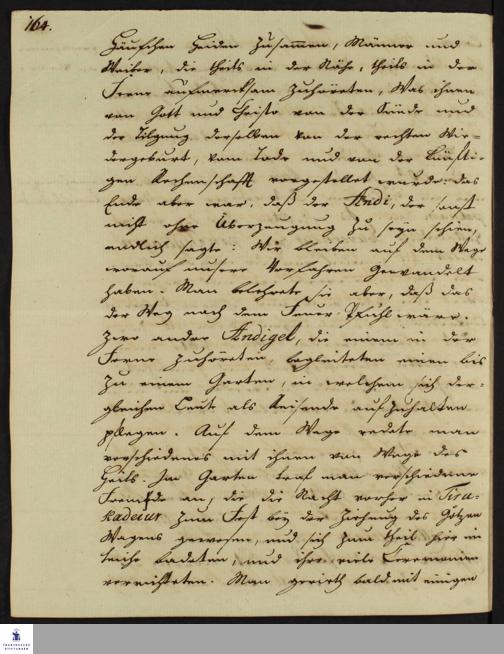 164.
Häufchen Heiden zusammen, Männer und
Weiber, die theils in der Nähe, theils in der
Ferne aufmercksam zuhöreten, was ihnen
von Gott und Christo von der Sünde und
der Tilgung derselben von der rechten Wie-
dergeburt, vom Tode und von der künfti-
gen Rechenschafft vorgestellet wurde: das
Ende aber war, daß der Andi, der sonst
nicht ohne Überzeugung zu seyn schien,
endlich sagte: Wir bleiben auf dem Wege
worauf unsere Vorfahren gewandelt
haben. Man belehrete sie aber, daß das
der Weg nach dem Feuer Pfuhl wäre.
Zwo andre Andigel, die einem in der
Ferne zuhöreten, begleiteten einen bis
zu einem Garten, in welchem sich der-
gleichen Leute als Reisende aufzuhalten
pflegen. Auf dem Wege redete man
verschiedenes mit ihnen vom Wege des
Heils. Im Garten traf man verschiedene
Fremde an, die die Nacht vorher in Tiru-
kadeiur zum Fest bey der Ziehung des Götzen
Wagens gewesen, und sich zum theil hier im
Teiche badeten, und ihre viele Ceremonien
verrichteten. Man gerieth bald mit einigen
FRANCKESCHE
STIFTUNGEN